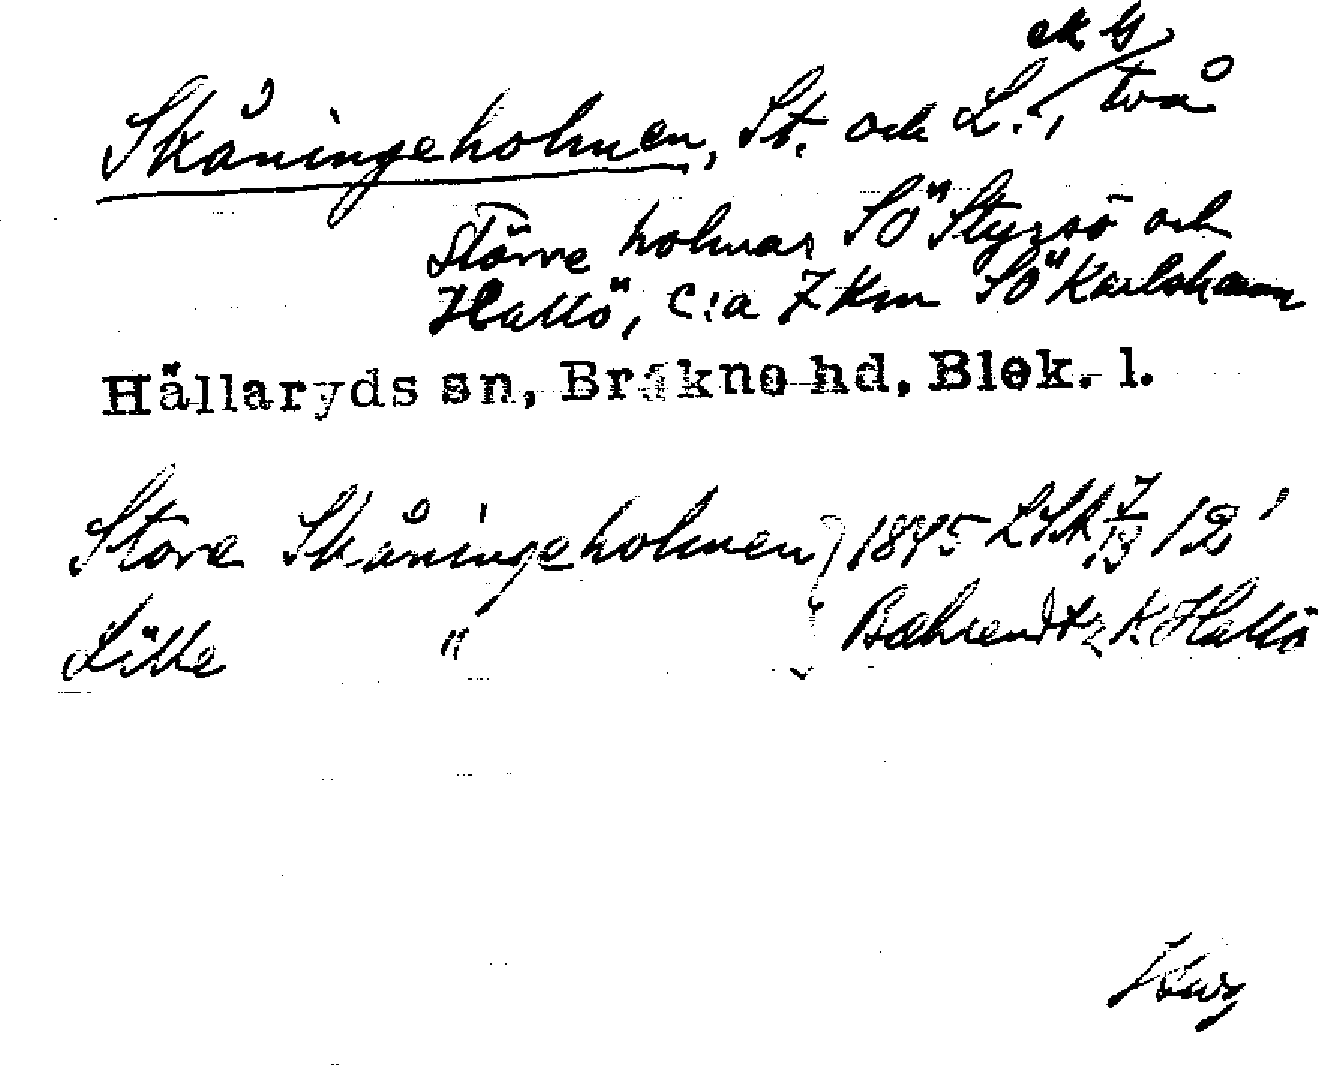 ek G
Skåningeholmen, St. och L., två
större holmar SÖ Styrsö och
Hallö, c:a 7 km SÖ Karlshamn
Hällaryds sn, Bräkne hd, Blek. l.
Store Skåningeholmen } 1845 LSk 12'
Lille " Bahrendtz K Hallö